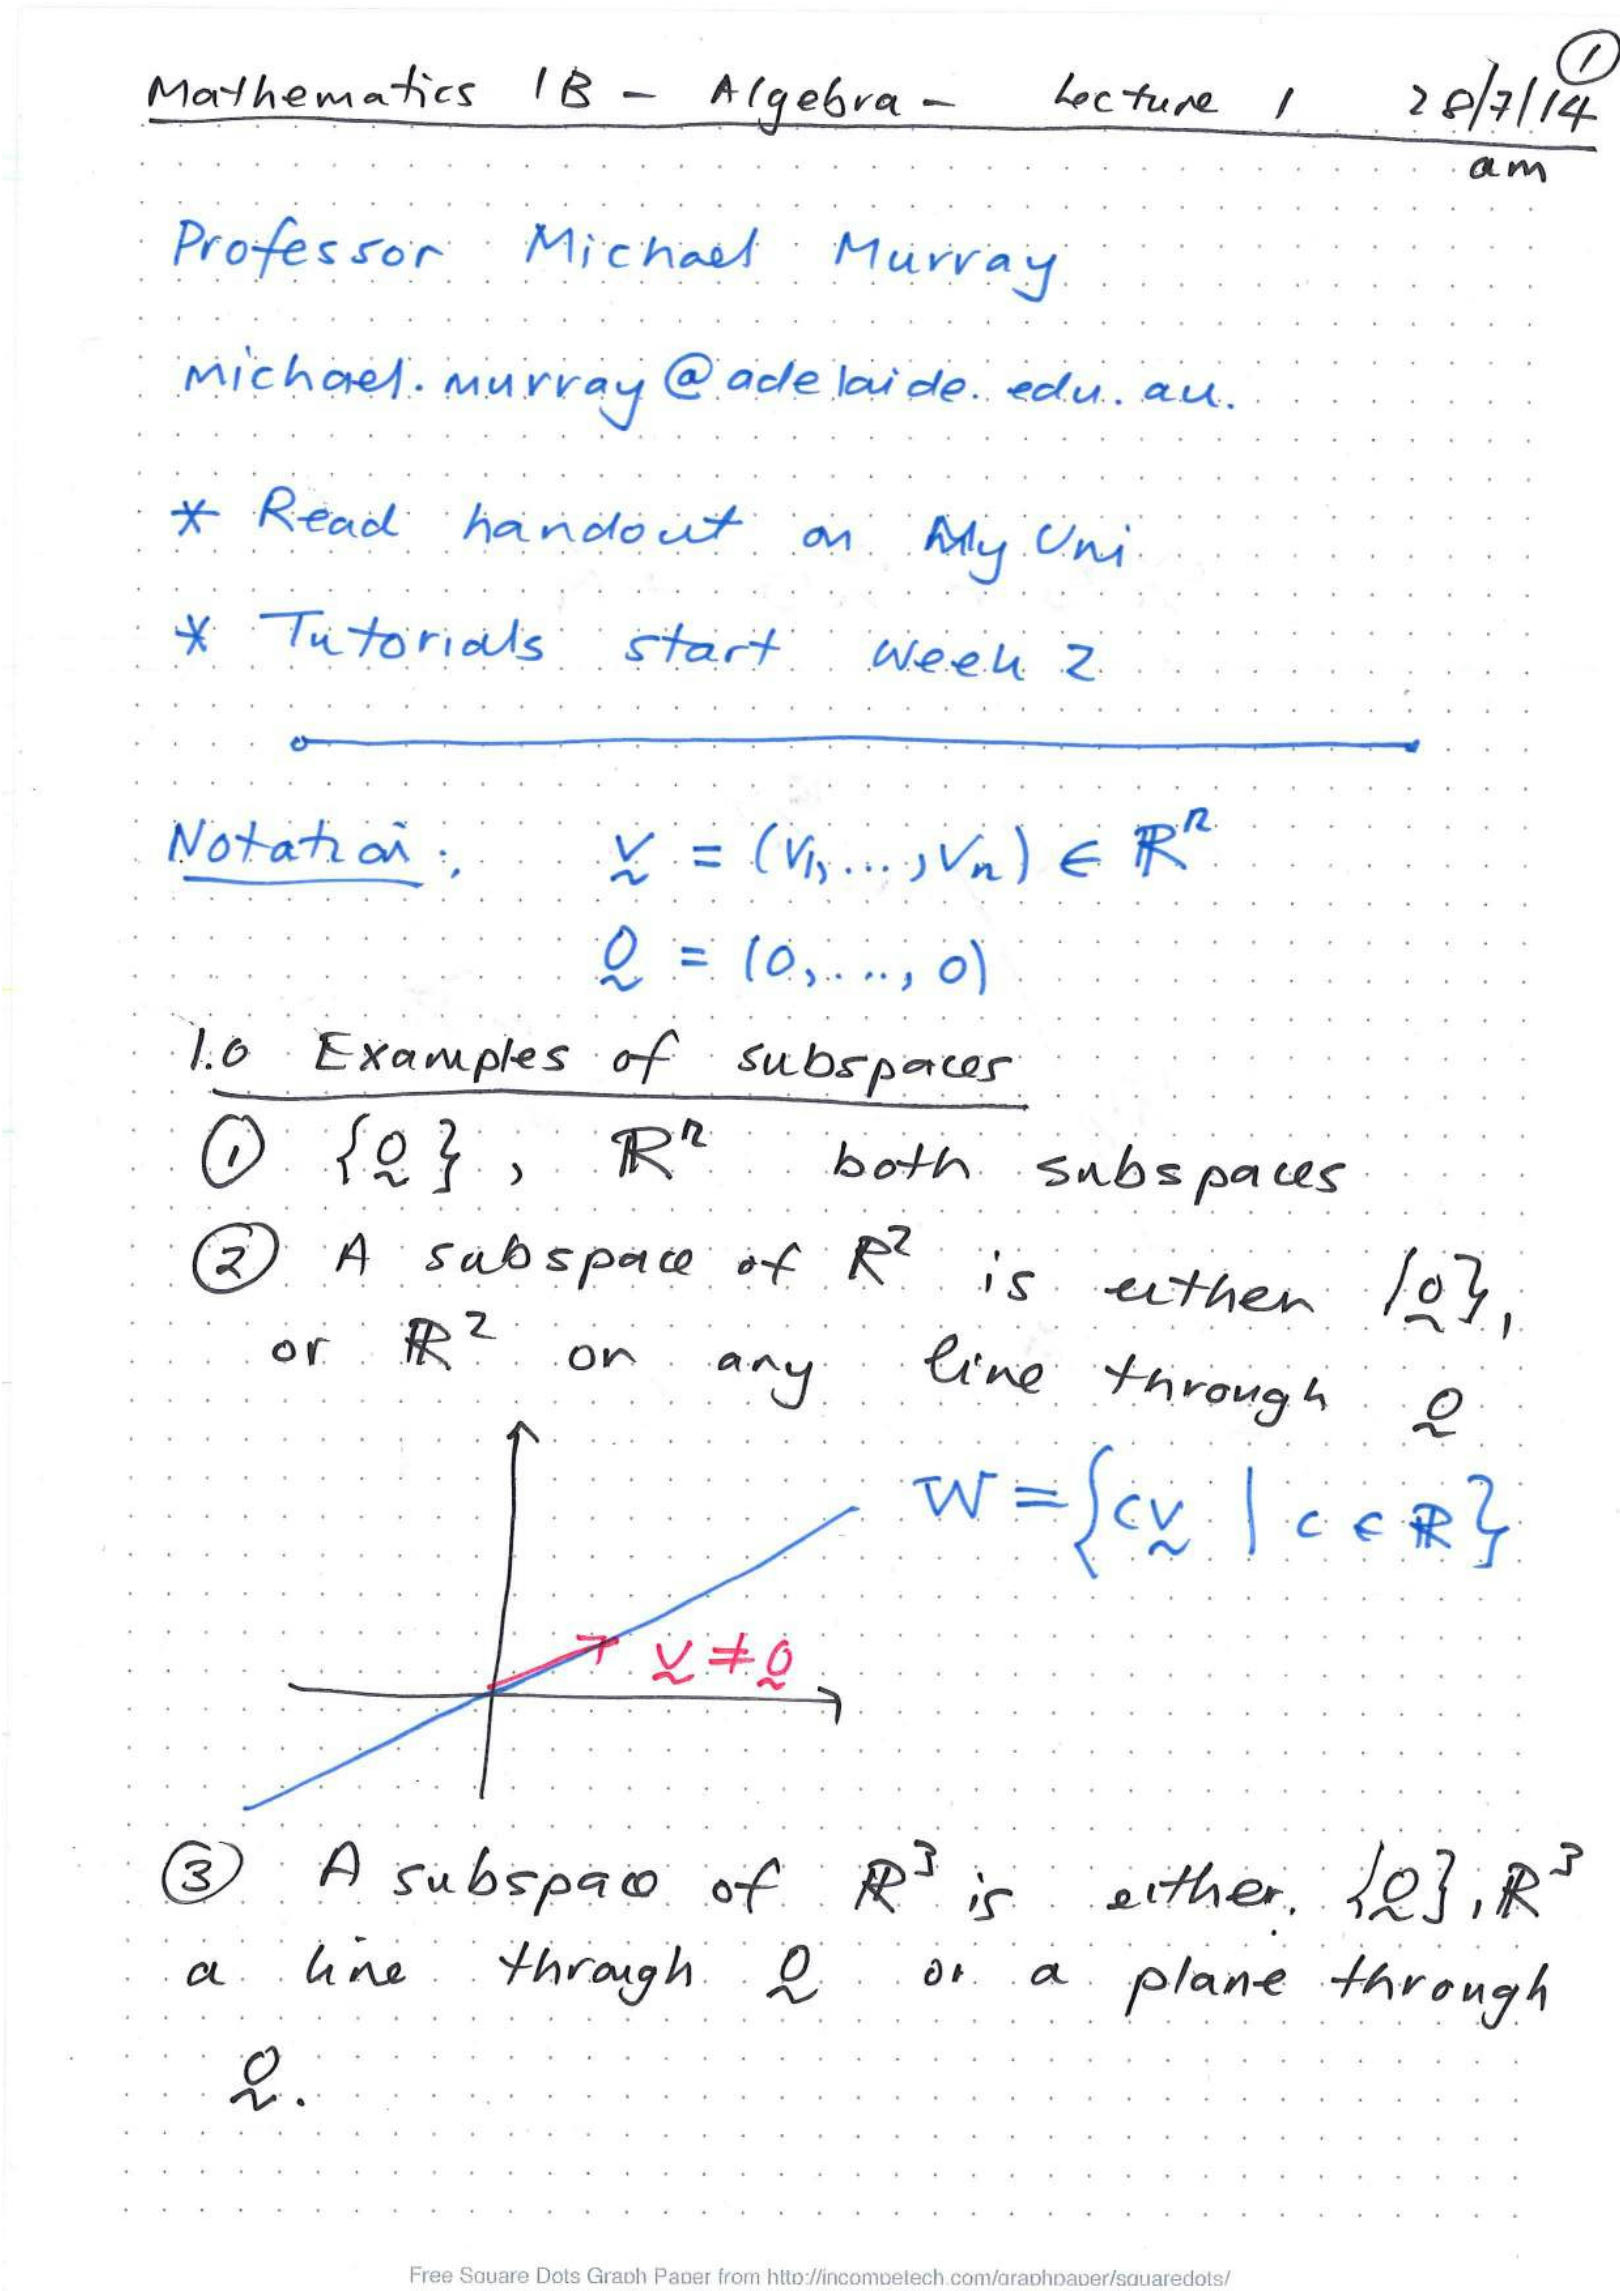 ①
Mathematics 1B – Algebra – Lecture 1 28/7/14
am
Professor Michael Murray
michael.murray@adelaide.edu.au.
* Read handout on My Uni
* Tutorials start week 2
Notation: v̰ = (v₁, ..., vₙ) ∈ ℝⁿ
0̰ = (0, ..., 0)
1.0 Examples of subspaces
① {0̰}, ℝⁿ both subspaces
② A subspace of ℝ² is either {0̰},
or ℝ² or any line through 0̰
W = {cv̰ | c ∈ ℝ}
v̰ ≠ 0̰
③ A subspace of ℝ³ is either {0̰}, ℝ³
a line through 0̰ or a plane through
0̰.
Free Square Dots Graph Paper from http://incompetech.com/graphpaper/squaredots/